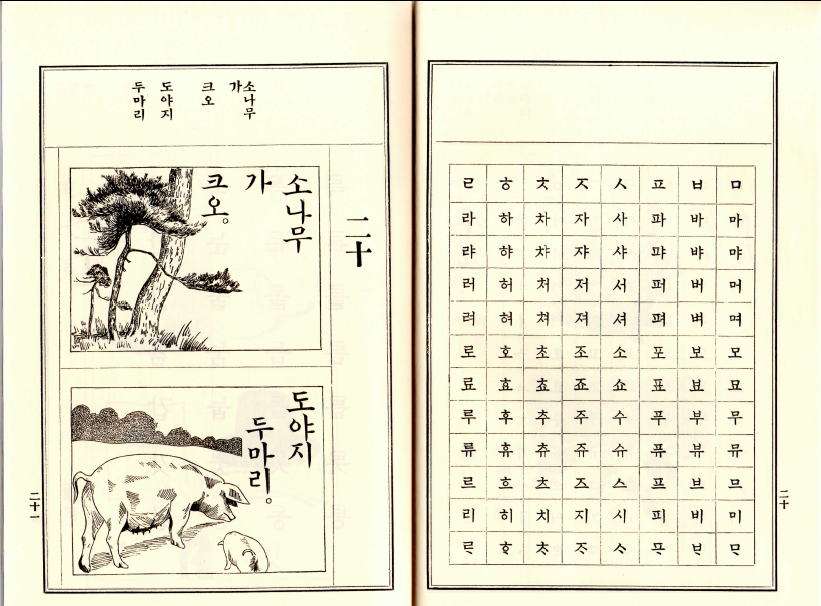 ㅁ 마 먀 머 며 모 묘 무 뮤 므 미 ᄆᆞ
ㅂ 바 뱌 버 벼 보 뵤 부 뷰 브 비 ᄇᆞ
ㅍ 파 퍄 퍼 펴 포 표 푸 퓨 프 피 ᄑᆞ
ㅅ 사 샤 서 셔 소 쇼 수 슈 스 시 ᄉᆞ
ㅈ 자 쟈 저 져 조 죠 주 쥬 즈 지 ᄌᆞ
ㅊ 차 챠 처 쳐 초 쵸 추 츄 츠 치 ᄎᆞ
ㅎ 하 햐 허 혀 호 효 후 휴 흐 히 ᄒᆞ
ㄹ 라 랴 러 려 로 료 루 류 르 리 ᄅᆞ
二十
소나무
가
크오
도야지
두마리
二十
소나무
가
크오。
도야지
두마리。
二十一